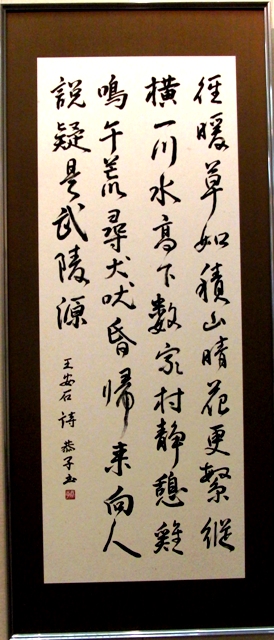 径暖草如積山晴花更繁縦
横一川水高下数家村静憩雞
鳴午荒尋犬吠昏帰来向人
説疑是武陵源
王安石詩 恭子書